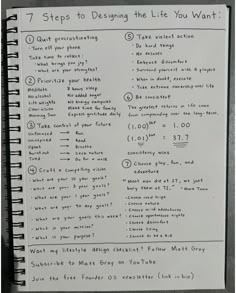 7 Steps to Designing the Life You Want:
① Quit procrastinating
- Turn off your phone
Take time to reflect:
- What brings you joy?
- What are your strengths?
② Prioritize your health
Meditate
8 hours sleep
No alcohol
No added sugar
Lift weights
No energy vampires
Clear vision
Make time for family
Morning Sun
Express gratitude daily
③ Take control of your future
Unfocused → Run
Uninspired → Read
Upset → Breathe
Burned out → Save nature
Tired → Go for a walk
④ Craft a compelling vision
- What are your 10 year goals?
- What are your 3 year goals?
- What are your 1 year goals?
- What are your 90 day goals?
- What are your goals this week?
- What is your mission?
- What is your purpose?
⑤ Take violent action
- Do hard things
- No excuses
- Embrace discomfort
- Surround yourself with A players
- When in doubt, execute
- Take extreme ownership over life
⑥ Be consistent
The greatest returns in life come
from compounding over the long-term.
(1.00)³⁶⁵ = 1.00
(1.01)³⁶⁵ = 37.7
consistency wins
⑦ Choose play, fun, and
adventure
"Most men die at 27, we just
bury them at 72." - Mark Twain
- Choose cold dips
- Choose nature
- Choose wild adventures
- Choose spontaneous nights
- Choose discomfort
- Choose living
- Choose to be a kid
Want my lifestyle design checklist? Follow Matt Gray
Subscribe to Matt Gray on YouTube
Join the free Founder OS newsletter (link in bio)